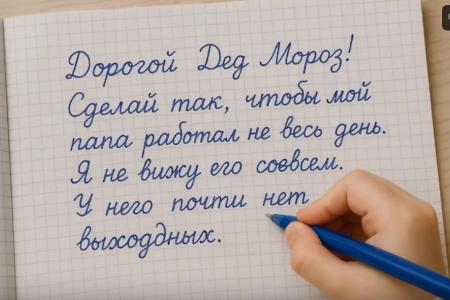 Дорогой Дед Мороз!
Сделай так, чтобы мой
папа работал не весь день.
Я не вижу его соввсем.
У него почти нет
выходдных.